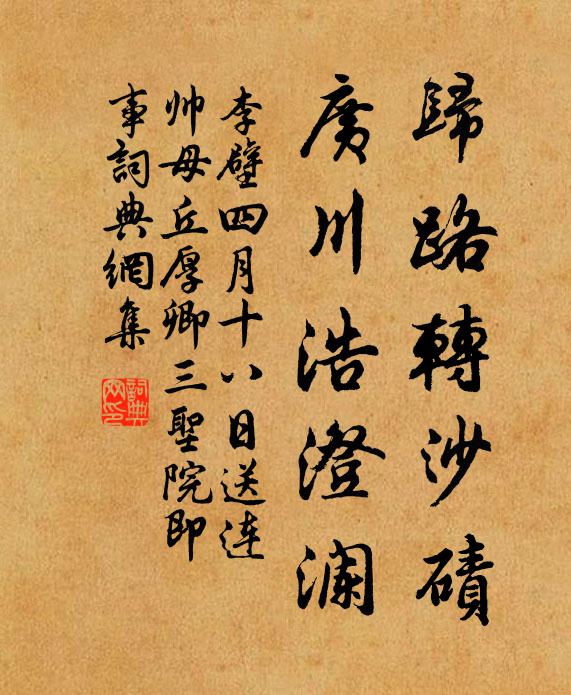 歸路轉沙磧
廣川浩澄瀾
李壁四月十八日送连
帅母丘厚卿三聖院即
事詞典網集
詞典網印